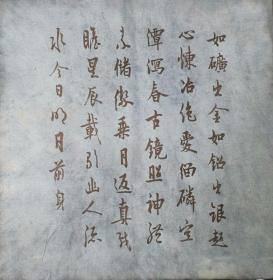 如礦出金如鉛出銀超
心煉冶絕愛緇磷空
潭瀉春古鏡照神體
素儲潔乘月返真載
瞻星辰載引幽人流
水今日明月前身